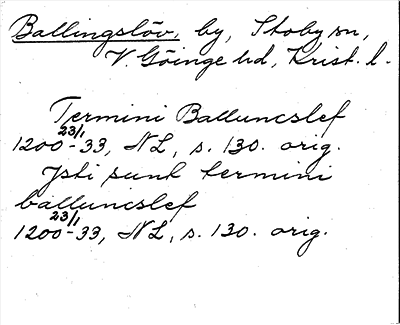 Ballingslöv, by, Stoby sn,
V. Göinge hd, Krist. l.
Termini Balluncslef
1200 23/1 -33, NL, s. 130. orig.
Isti sunt termini
balluncslef
1200 23/1 -33, NL, s. 130. orig.